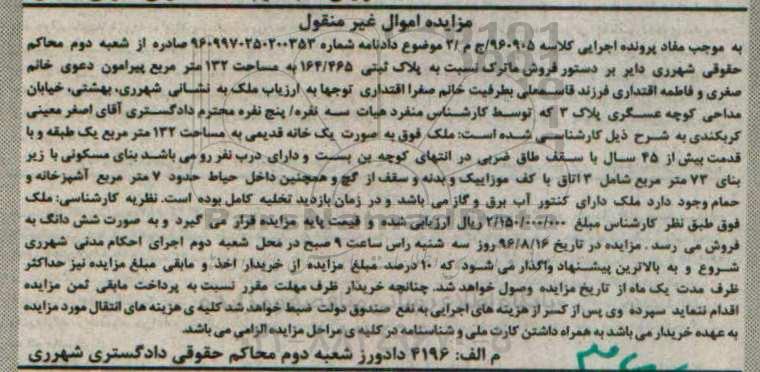 مزایده اموال غیر منقول
به موجب مفاد پرونده اجرایی کلاسه ۹۶۰۹۰۵/ج م /۲ موضوع دادنامه شماره ۹۶۰۹۹۷۰۲۵۰۲۰۰۳۵۳ صادره از شعبه دوم محاکم
حقوقی شهرری دایر بر دستور فروش ماترک نسبت به پلاک ثبتی ۱۶۴/۴۶۵ به مساحت ۱۳۲ متر مربع پیرامون دعوی خانم
صغری و فاطمه اقتداری فرزند قاسمعلی بطرفیت خانم صغرا اقتداری توجها به ارزیاب ملک به نشانی شهرری، بهشتی، خیابان
مداحی کوچه عسگری پلاک ۳ که توسط کارشناس منفرد هیات سه نفره/ پنج نفره محترم دادگستری آقای اصغر معینی
کربکندی به شرح ذیل کارشناسی شده است: ملک فوق به صورت یک خانه قدیمی به مساحت ۱۳۲ متر مربع یک طبقه و با
قدمت بیش از ۴۵ سال با سقف طاق ضربی در انتهای کوچه بن بست و دارای درب نفر رو می باشد بنای مسکونی با زیر
بنای ۷۳ متر مربع شامل ۳ اتاق با کف موزاییک و بدنه و سقف از گچ و همچنین داخل حیاط حدود ۷ متر مربع آشپزخانه و
حمام وجود دارد ملک دارای کنتور آب برق و گاز می باشد و در زمان بازدید تخلیه کامل بوده است. نظریه کارشناسی: ملک
فوق طبق نظر کارشناس مبلغ ۲/۱۵۰/۰۰۰/۰۰۰ ریال ارزیابی شده و قیمت پایه مزایده قرار می گیرد و به صورت شش دانگ به
فروش می رسد . مزایده در تاریخ ۹۶/۸/۱۶ روز سه شنبه راس ساعت ۹ صبح در محل شعبه دوم اجرای احکام مدنی شهرری
شروع و به بالاترین پیشنهاد واگذار می شود که ۱۰ درصد مبلغ مزایده از خریدار اخذ و مابقی مبلغ مزایده نیز حداکثر
ظرف مدت یک ماه از تاریخ مزایده وصول خواهد شد. چنانچه خریدار ظرف مهلت مقرر نسبت به پرداخت مابقی ثمن مزایده
اقدام ننماید سپرده وی پس از کسر از هزینه های اجرایی به نفع صندوق دولت ضبط خواهد شد کلیه ی هزینه های انتقال مورد مزایده
به عهده خریدار می باشد به همراه داشتن کارت ملی و شناسنامه در کلیه ی مراحل مزایده الزامی می باشد.
م الف: ۴۱۹۶ دادورز شعبه دوم محاکم حقوقی دادگستری شهرری